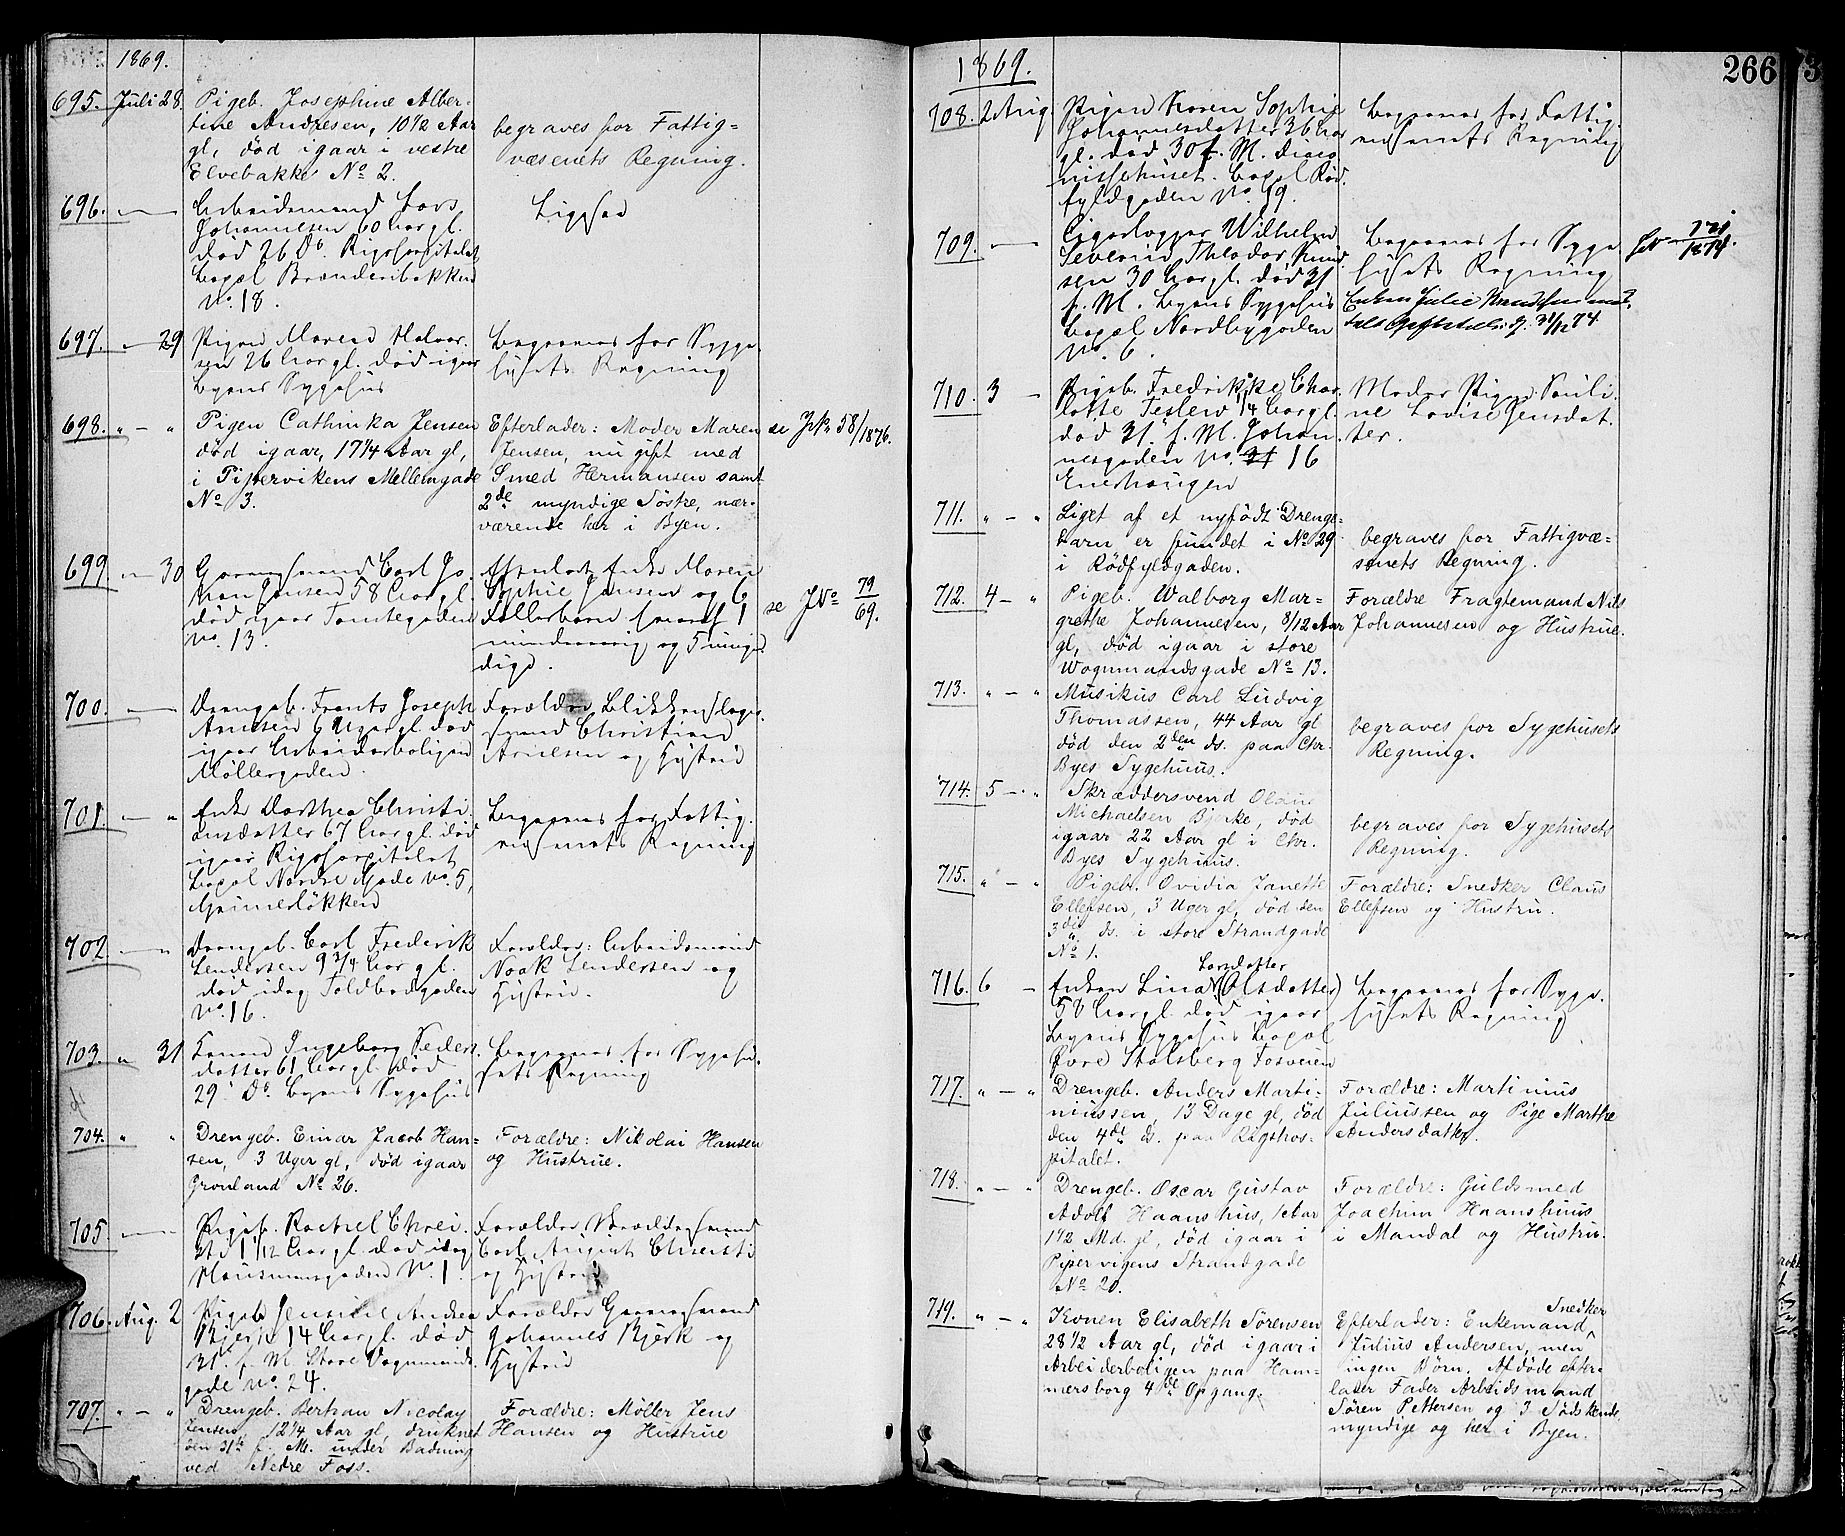 1869.
695. Juli 28. Pigeb. Josephine Alber-
tine Andresen, 10 1/2 Aar
gl, död igaar i vestre
Elvebakke No 2.
begraves for Fattig=
væsenets Regning.
696. — Arbeidsmand Lars
Johannesen 60 Aar gl.
död 26 Do. Rigshospitalet
No. 18.
Ligsed
697. — 29 Pigen Maren Halvor-
sen 26 Aar gl. död igaar
Byens Sygehus
Begraves for Syge-
husets Regning
698. " - " Pigen Cathinka Jensen
död igaar, 17 1/4 Aar gl,
i Pipervikens Mellemgade
No 3.
Efterlader: Moder Maren
Jensen, nu gift med
Smed Hermansen samt
2de myndige Söstre, nær-
værende her i Byen.
se JNr 58/1876.
699 — 30 Carl Jo-
han Jensen 58 Aar gl.
död igaar Tomtegaden
No. 13.
Efterladt Enke Maren
Sophie Jensen og 6
Fællesbörn hvoraf 1
mindreaarig og 5 myn-
dige.
se JNo 79/69.
700. — Drengeb. Frants Joseph
Arnesen 6 Uger gl. död
igaar Arbeiderboligen
Möllergaden.
Forældre Blikkenslager-
svend Christian
Arnesen og Hustru
701. — " Enke Dorthea Christi-
ansdatter 67 Aar gl. död
igaar Rigshospitalet
Bopæl Nordre Gade No. 5,
Grünerlökken
Begraves for Fattig-
væsenets Regning
702 — " Drengeb. Carl Frederik
Lendersen 9 3/4 Aar gl.
död idag Toldbodgaden
No. 16.
Forældre: Arbeidsmand
Noak Lendersen og
Hustru.
703. " 31 Konen Ingeborg Peders-
datter 61 Aar gl. död
29. Do. Byens Sygehus
Begraves for Sygehu-
sets Regning
704. " " Drengeb. Einar Jacob Han=
sen, 3 Uger gl, död igaar
Grönland No 26.
Forældre: Nikolai Hansen
og Hustrue.
705 — Pigeb. Rachel Christi-
1 1/12 Aar gl. död idag
Hausmannsgaden No. 1.
Forældre
Carl August Christi
og Hustru
706. Aug. 2 Pigeb. Jensine Andrea
Bjerk 14 Aar gl. död
31. f. M. Store Vognmands-
gade No. 24.
Forældre
Johannes Bjerk og
Hustru
707. " - " Drengeb. Bertran Nicolay
Jensen, 12 1/4 Aar gl, druknet
den 31te f. M. under Badning
ved Nedre Foss.
Forældre: Möller Jens
Hansen og Hustrue
1869.
266
708. 2 Aug. Pigen Karen Sophie
Johannesdatter 36 Aar
gl. död 30 f. M. Diaco-
nissehuset. Bopæl Röd-
fyldgaden No. 39.
Begraves for Fattig-
væsenets Regning
709. — Wilhelm
Severin Theodor Knud-
sen 30 Aar gl. död 31
f. M. Byens Sygehus
Bopæl Nordbygaden
No. 6.
Begraves for Syge-
husets Regning
Enken Julie
31/12 74.
710. 3 - Pigeb. Fredrikke Char-
lotte Teslew 14 Aar gl.
död 31. f. M. Johan-
nesgaden No. 21 16
Enerhaugen
Moder Pigen Pauli-
ne Lovise Jensdat-
ter.
711. " - " Liget af et nyfödt Drenge=
barn er fundet i No 29
i Rödfyldgaden.
begraves for Fattigvæ=
senets Regning.
712. 4 - " Pigeb. Walborg Mar-
grethe Johannesen, 8/12 Aar
gl, död igaar i store
Wognmandsgade No 13.
Forældre Fragtemand Nils
Johannesen og Hustrue.
713. " - " Musikus Carl Ludvig
Thomassen, 44 Aar gl
död den 2den ds. paa Chr.
Byes Sygehuus.
begraves for Sygehusets
Regning.
714. 5 - " Skræddersvend Olaus
Michaelsen Bjerke, död
igaar 22 Aar gl i Chr.
Byes Sygehuus.
begraves for Sygehusets
Regning.
715. " - " Pigeb. Ovidia Janette
Ellefsen, 3 Uger gl, död den
3die ds. i store Strandgade
No 1.
Forældre: Snedker Claus
Ellefsen og Hustru.
716. 6 - Enken Lina Larsdatter (Olsdatter)
50 Aar gl. död igaar
Byens Sygehus Bopæl
Övre Stolsberg Fosveien
Begraves for Syge-
husets Regning
717. " - " Drengeb. Anders Marti-
niussen, 13 Dage gl, död
den 4de ds. paa Rigshos-
pitalet.
Forældre: Martinius
Juliussen og Pige Marthe
Andersdatter.
718. " - " Drengeb. Oscar Gustav
Adolf Haanshus, 1 Aar
1 1/2 Md. gl, död igaar i
Pipervigens Strandgade
No 20.
Forældre: Guldsmed
Joachim Haanshuus
i Mandal og Hustru.
719. " - " Konen Elisabeth Sörensen
28 1/2 Aar gl, död igaar i
Arbeiderboligen paa Ham-
mersborg 4de Opgang.
Efterlader: Enkemand, Snedker
Julius Andersen, men
ingen Börn. Afdöde efter-
lader Fader Arbeidsmand
Sören Pettersen og 3 Södskende
myndige og her i Byen.